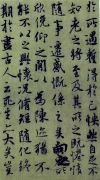 於所遇暫得於己快然自足不
知老之將至及其所之既惓情
隨事遷感慨係之矣向之所
欣俛仰之間以為陳迹猶不
能不以之興懷況脩短隨化終
期於盡古人云死生亦大矣豈